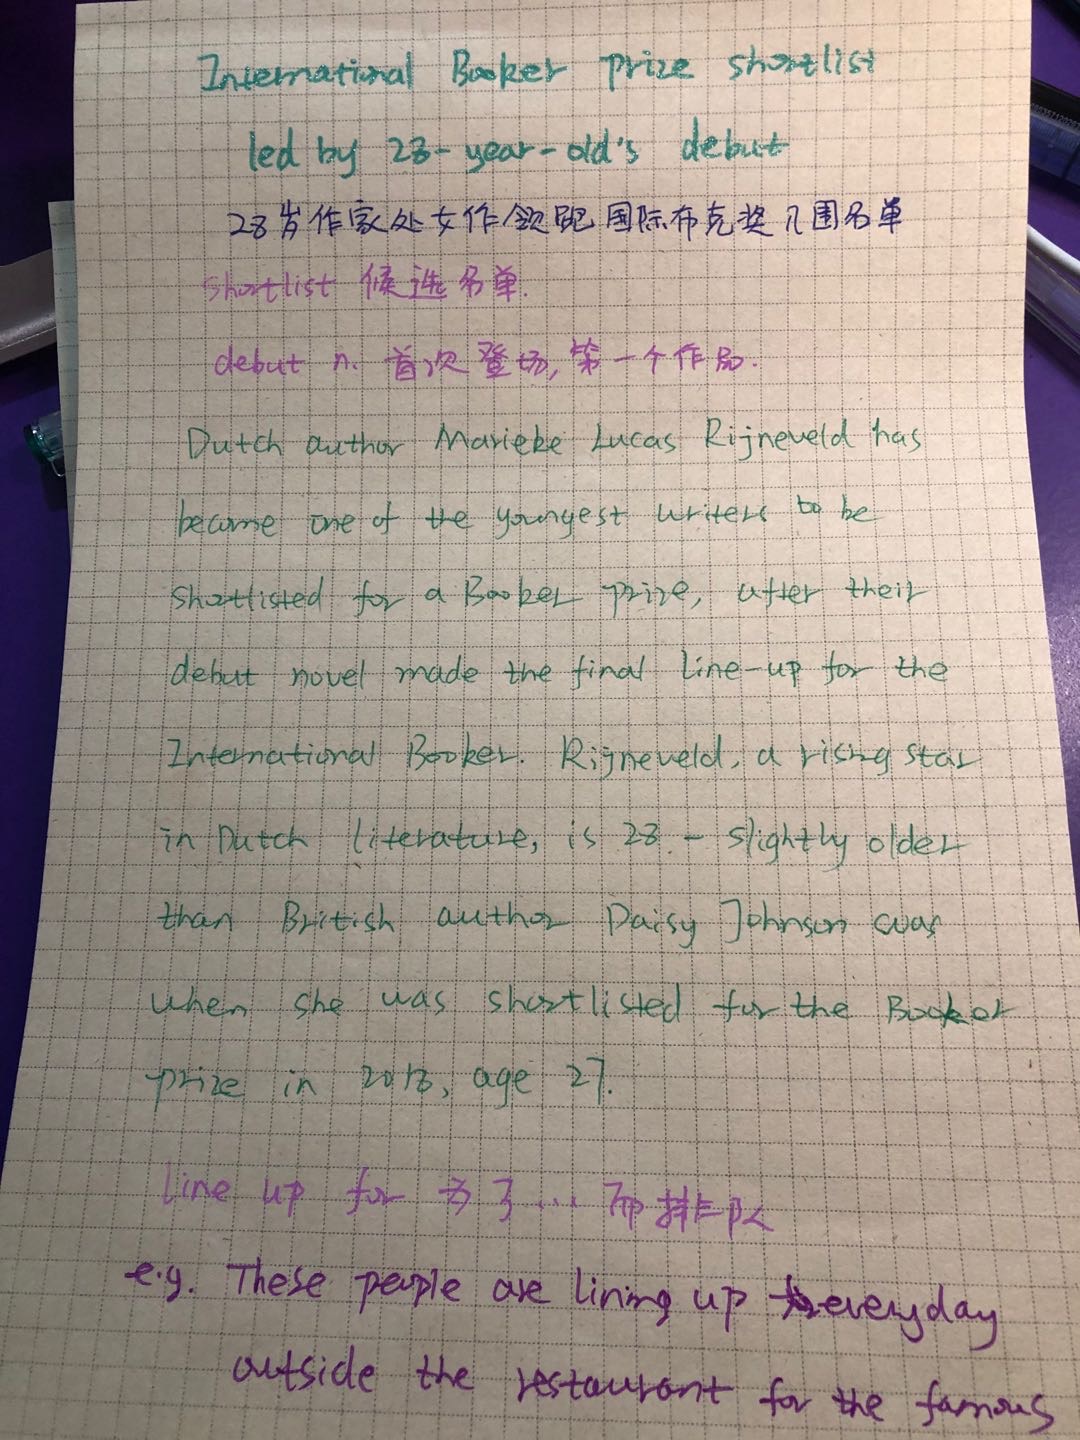 International Booker prize shortlist
led by 28-year-old's debut
28岁作家处女作领跑国际布克奖入围名单
shortlist 候选名单.
debut n. 首次登场,第一个作品.
Dutch author Marieke Lucas Rijneveld has
become one of the youngest writers to be
shortlisted for a Booker prize, after their
debut novel made the final line-up for the
International Booker. Rijneveld, a rising star
in Dutch literature, is 28 - slightly older
than British author Daisy Johnson was
when she was shortlisted for the Booker
prize in 2018, age 27.
line up for 为了...而排队
e.g. These people are lining up everyday
outside the restaurant for the famous